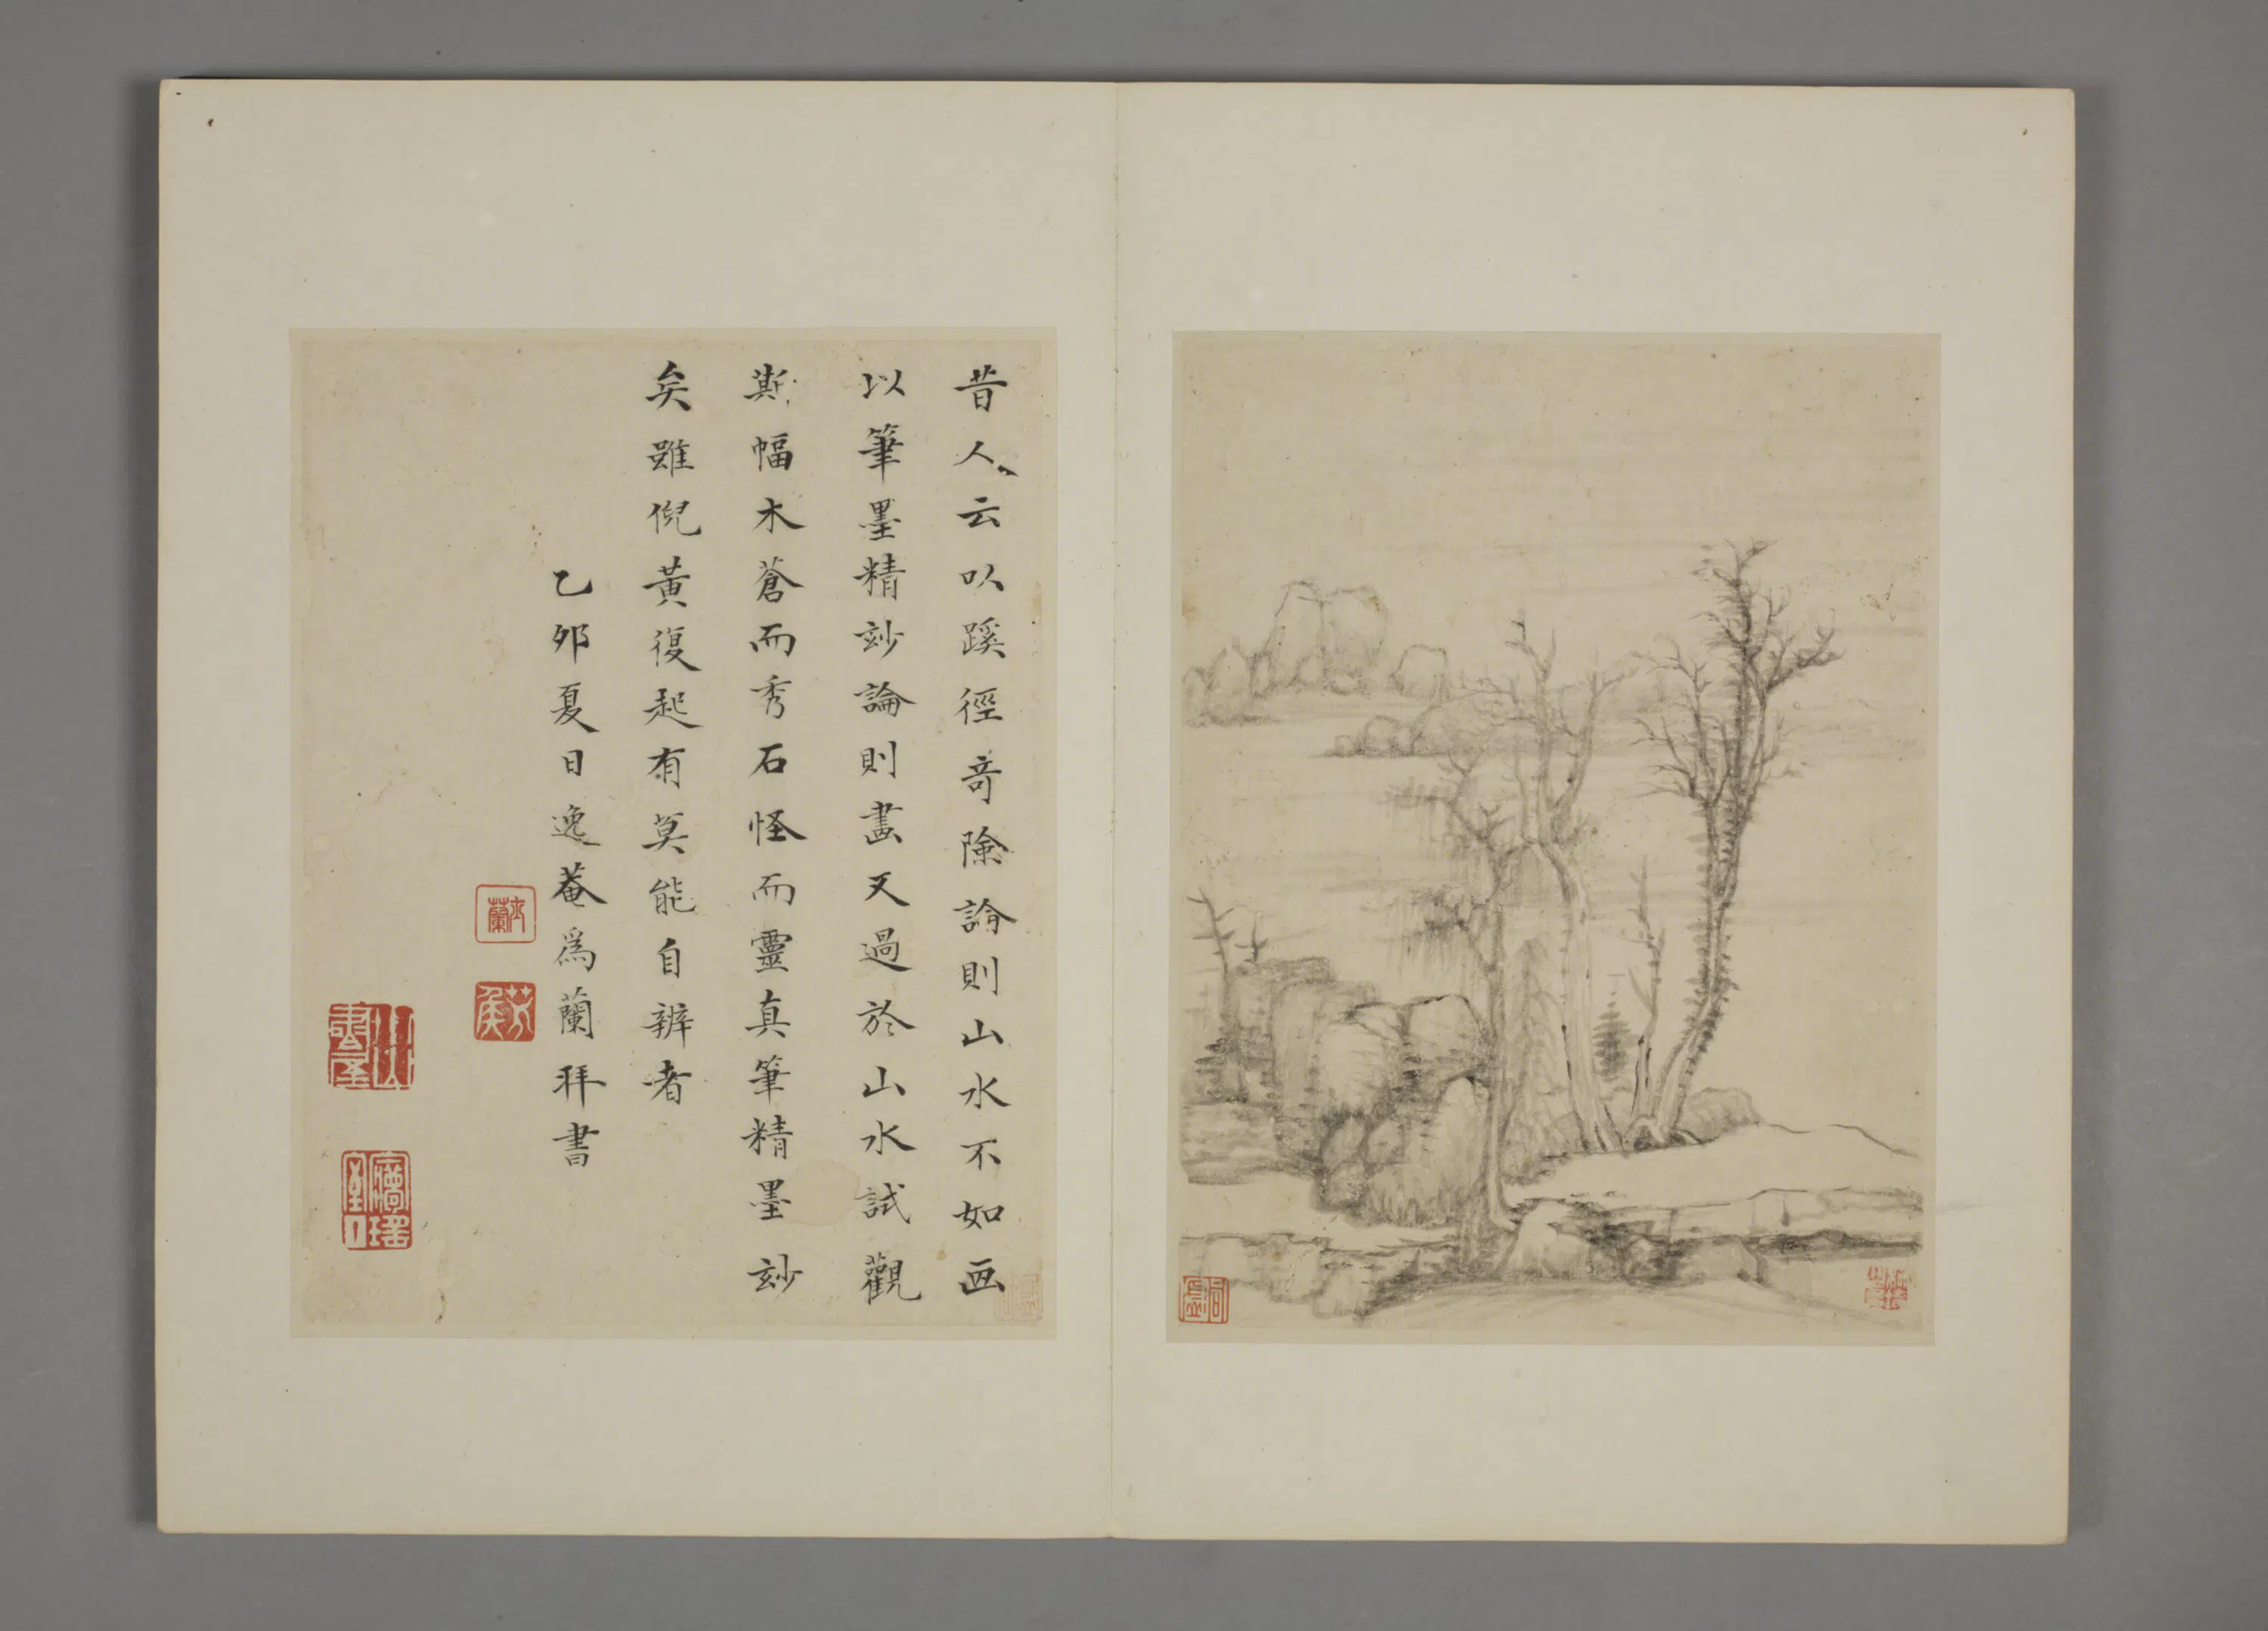 昔人云以蹊徑奇險論則山水不如画
以筆墨精玅論則畫又過於山水試觀
斯幅木蒼而秀石怪而靈真筆精墨玅
矣雖倪黃復起有莫能自辨者
乙夘夏日逸菴爲蘭拜書